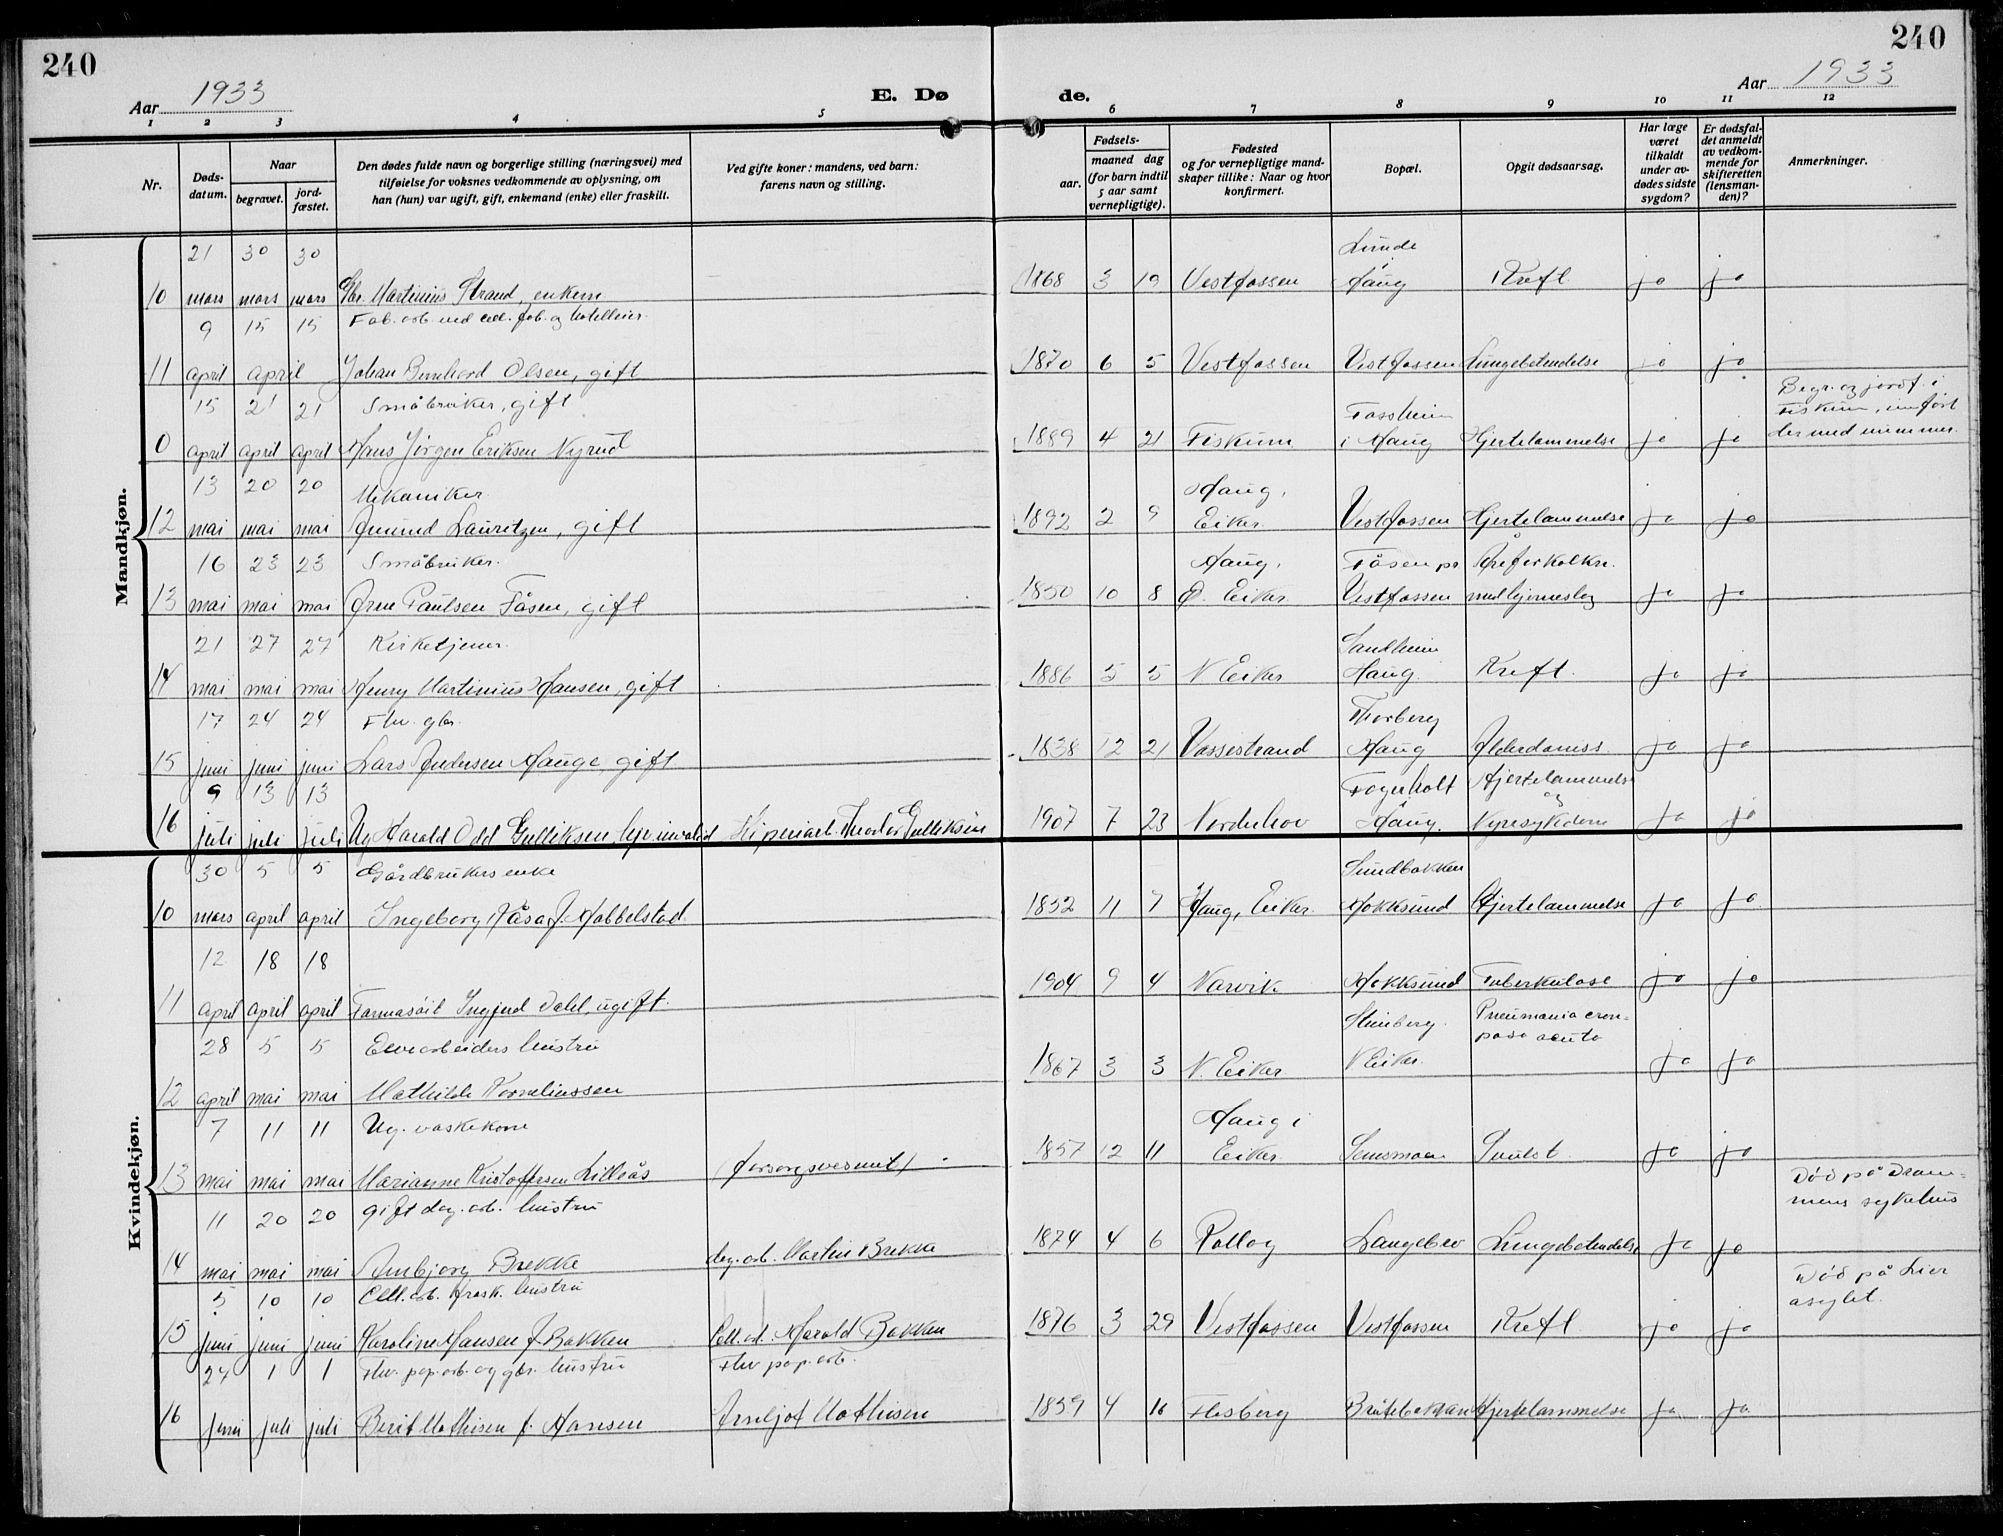 240
240
Aar 1933
E. Dø
de.
Aar 1933
1 2 3 4 5 6 7 8 9 10 11 12
Nr.
Døds-
datum.
Naar
begravet.
jord-
fæstet.
Den dødes fulde navn og borgerlige stilling (næringsvei) med
tilføielse for voksnes vedkommende av oplysning, om
han (hun) var ugift, gift, enkemand (enke) eller fraskilt.
Ved gifte koner: mandens, ved barn:
farens navn og stilling.
Fødsels-
aar.
maaned dag
(for barn indtil
5 aar samt
vernepligtige).
Fødested
og for vernepligtige mand-
skaper tillike: Naar og hvor
konfirmert.
Bopæl.
Opgit dødsaarsag.
Har læge
været
tilkaldt
under av-
dødes sidste
sygdom?
Er dødsfal-
det anmeldt
av vedkom-
mende for
skifteretten
(lensman-
den)?
Anmerkninger.
Mandkjøn.
21 30 30 Lunde i
10 mars mars mars Gbr. Martinius Strand, enkem 1868 3 19 Vestfossen Haug Kreft ja ja
9 15 15 Fab. arb. ved cell. fab. og hotelleier.
11 april april Johan Bernhard Olsen, gift 1870 6 5 Vestfossen Vestfossen Lungebetendelse ja ja
15 21 21 Småbruker, gift Fossheim Begr. og jordf. i
Fiskum, innført
0 april april april Hans Jørgen Eriksen Nyrud 1889 4 21 Fiskum i Haug Hjertelammelse ja ja der med nummer.
13 20 20 Mekaniker Haug,
12 mai mai mai Ømund Lauritzen, gift 1892 2 9 Eiker Vestfossen Hjertelammelse ja ja
16 23 23 Småbruker. Haug, Fåsen pr Åreforkalkn.
13 mai mai mai Øren Paulsen Fåsen, gift 1850 10 8 Ø. Eiker Vestfossen med hjerneslag ja ja
21 27 27 Kirketjener. Sandheim
14 mai mai mai Henry Martinius Hansen, gift 1886 5 5 N Eiker Haug. Kreft. ja ja
17 24 24 Fhv. gbr. Thorberg
15 juni juni juni Lars Andersen Hauge, gift 1838 12 21 Vossestrand Haug Alderdomss. ja ja
9 13 13 Fagerholt Hjertelammelse
og
16 juli juli juli Ug Harald Odd Gulliksen, Theodor Gulliksen 1907 7 23 Norderhov Haug. Nyresykdom ja ja
Kvindekjøn.
30 5 5 Gårdbrukers enke Sundbakken
10 mars april april Ingeborg Åsa f. Hobbelstad 1852 11 7 Haug, Eiker. Hokksund Hjertelammelse ja ja
12 18 18
11 april april april Farmasøit Ingjerd Dahl, ugift. 1904 9 4 Narvik Hokksund Tuberkulose ja ja
28 5 5 Elvearbeiders hustru Steinberg. Pneumonia crou-
posa acuta
12 april mai mai Mathilde Korneliussen 1867 3 3 N. Eiker N Eiker. ja ja
7 11 11 Ug. vaskekone Haug i
13 mai mai mai Marianne Kristoffersen Lilleås (forsorgsvesenet) 1857 12 11 Eiker. Semsmoen ja ja
11 20 20 gift dag. arb. hustru Død på Dram-
mens sykehus
14 mai mai mai Ambjørg Brekke dag. arb. Martin Brekke 1874 4 6 Rollag Langebro Lungebetendelse ja ja
5 10 10 Cell. arb. frask. hustru Død på Lier
asylet.
15 juni juni juni Karoline Hansen f. Bakken Cell. arb. Harald Bakken 1876 3 29 Vestfossen Vestfossen Kreft ja ja
24 1 1 Fhv. pap. arb. og gbr. hustru Fhv pap. arb.
16 juni juli juli Berit Mathisen f. Hansen Mathisen 1859 4 16 Flesberg Bråtebakken Hjertelammelse ja ja